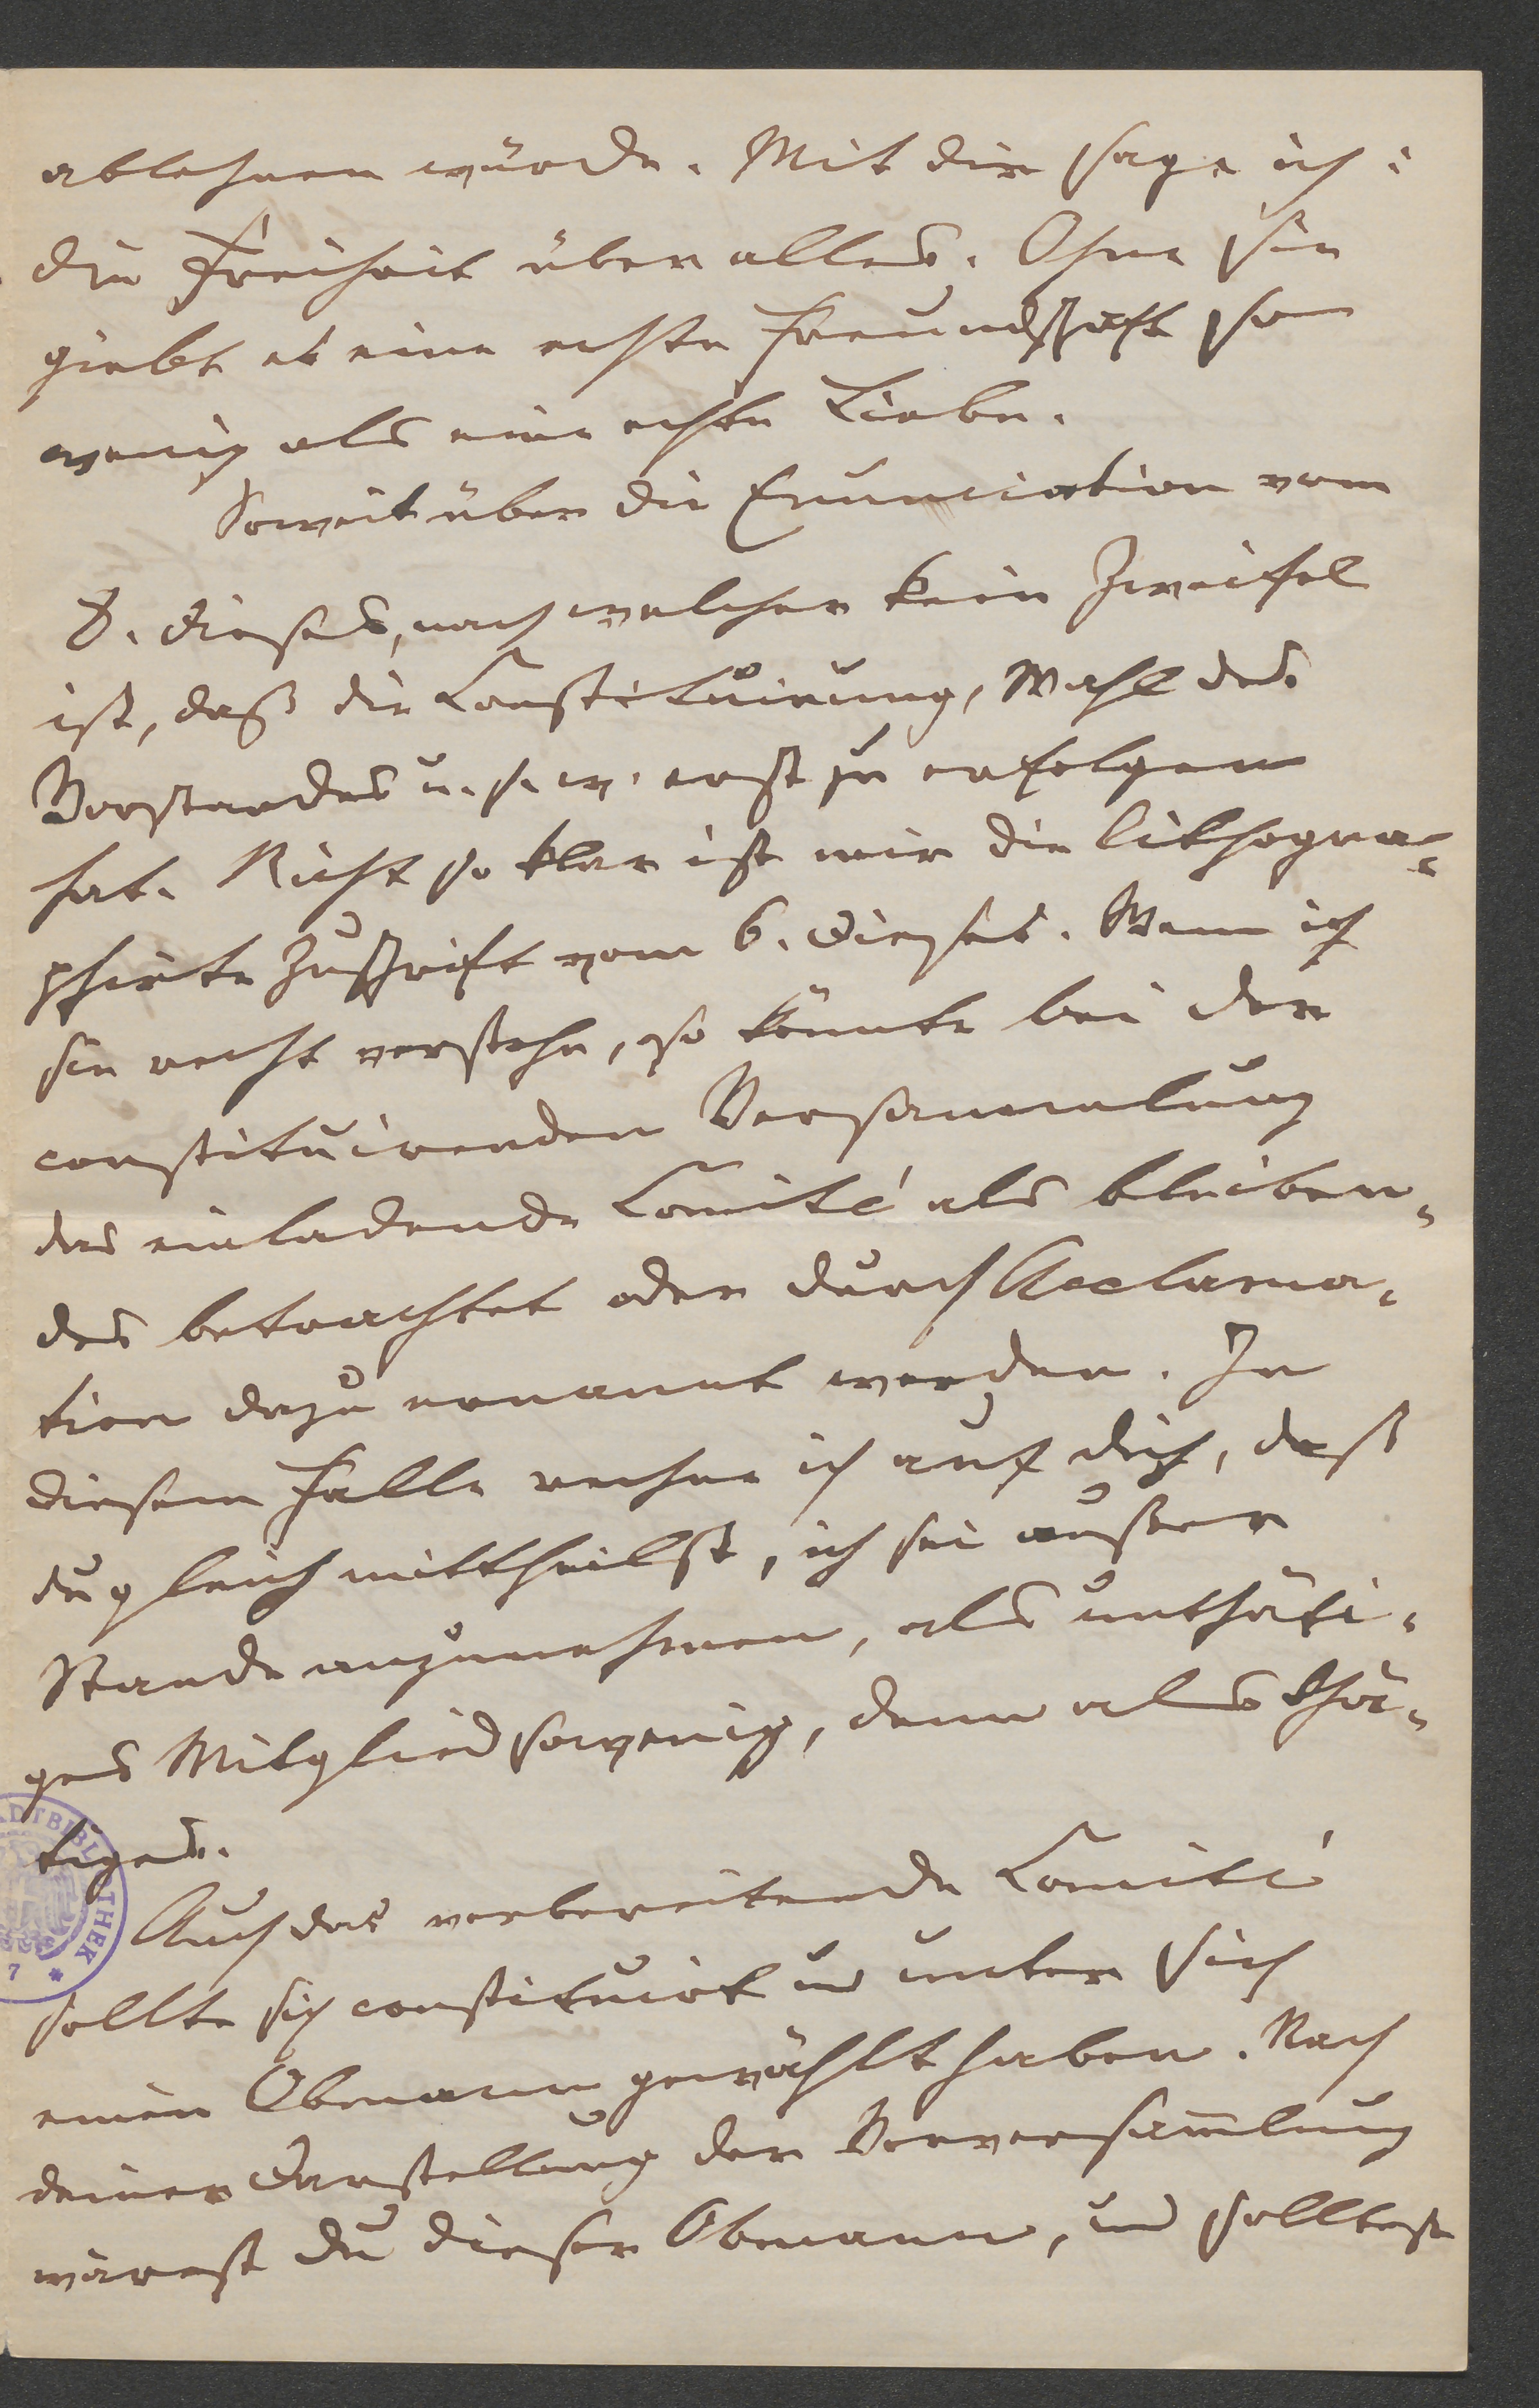 ablehnen würde. Mit dir sage ich:
die Freiheit über alles. Ohne sie
giebt es eine echte Freundschaft so
wenig als eine echte Liebe.
Soweit über die Enunciation vom
8. dieses, nach welcher kein Zweifel
ist, daß die Constituirung, Wahl des
Vorstandes u. s. w. erst zu erfolgen
hat. Nicht so klar ist mir die lithogra-
phirte Zuschrift vom 6. dieses. Wenn ich
sie recht verstehe, so könnte bei der
constituirenden Versammlung
das einladende Comité als bleiben-
des betrachtet oder durch Acclama-
tion dazu ernannt werden. In
diesem Falle rechne ich auf dich, daß
du gleich mittheilst, ich sei außer
Stande anzunehmen, als unthäti-
ges Mitglied sowenig, denn als thä-
tiges.
Auch das vorbereitende Comité
sollte sich constituirt und unter sich
einen Obmann gewählt haben. Nach
deiner Darstellung der Vorversam̄lung
wärest du dieser Obmann, und solltest
ADTBIBLIOTHEK
7 *